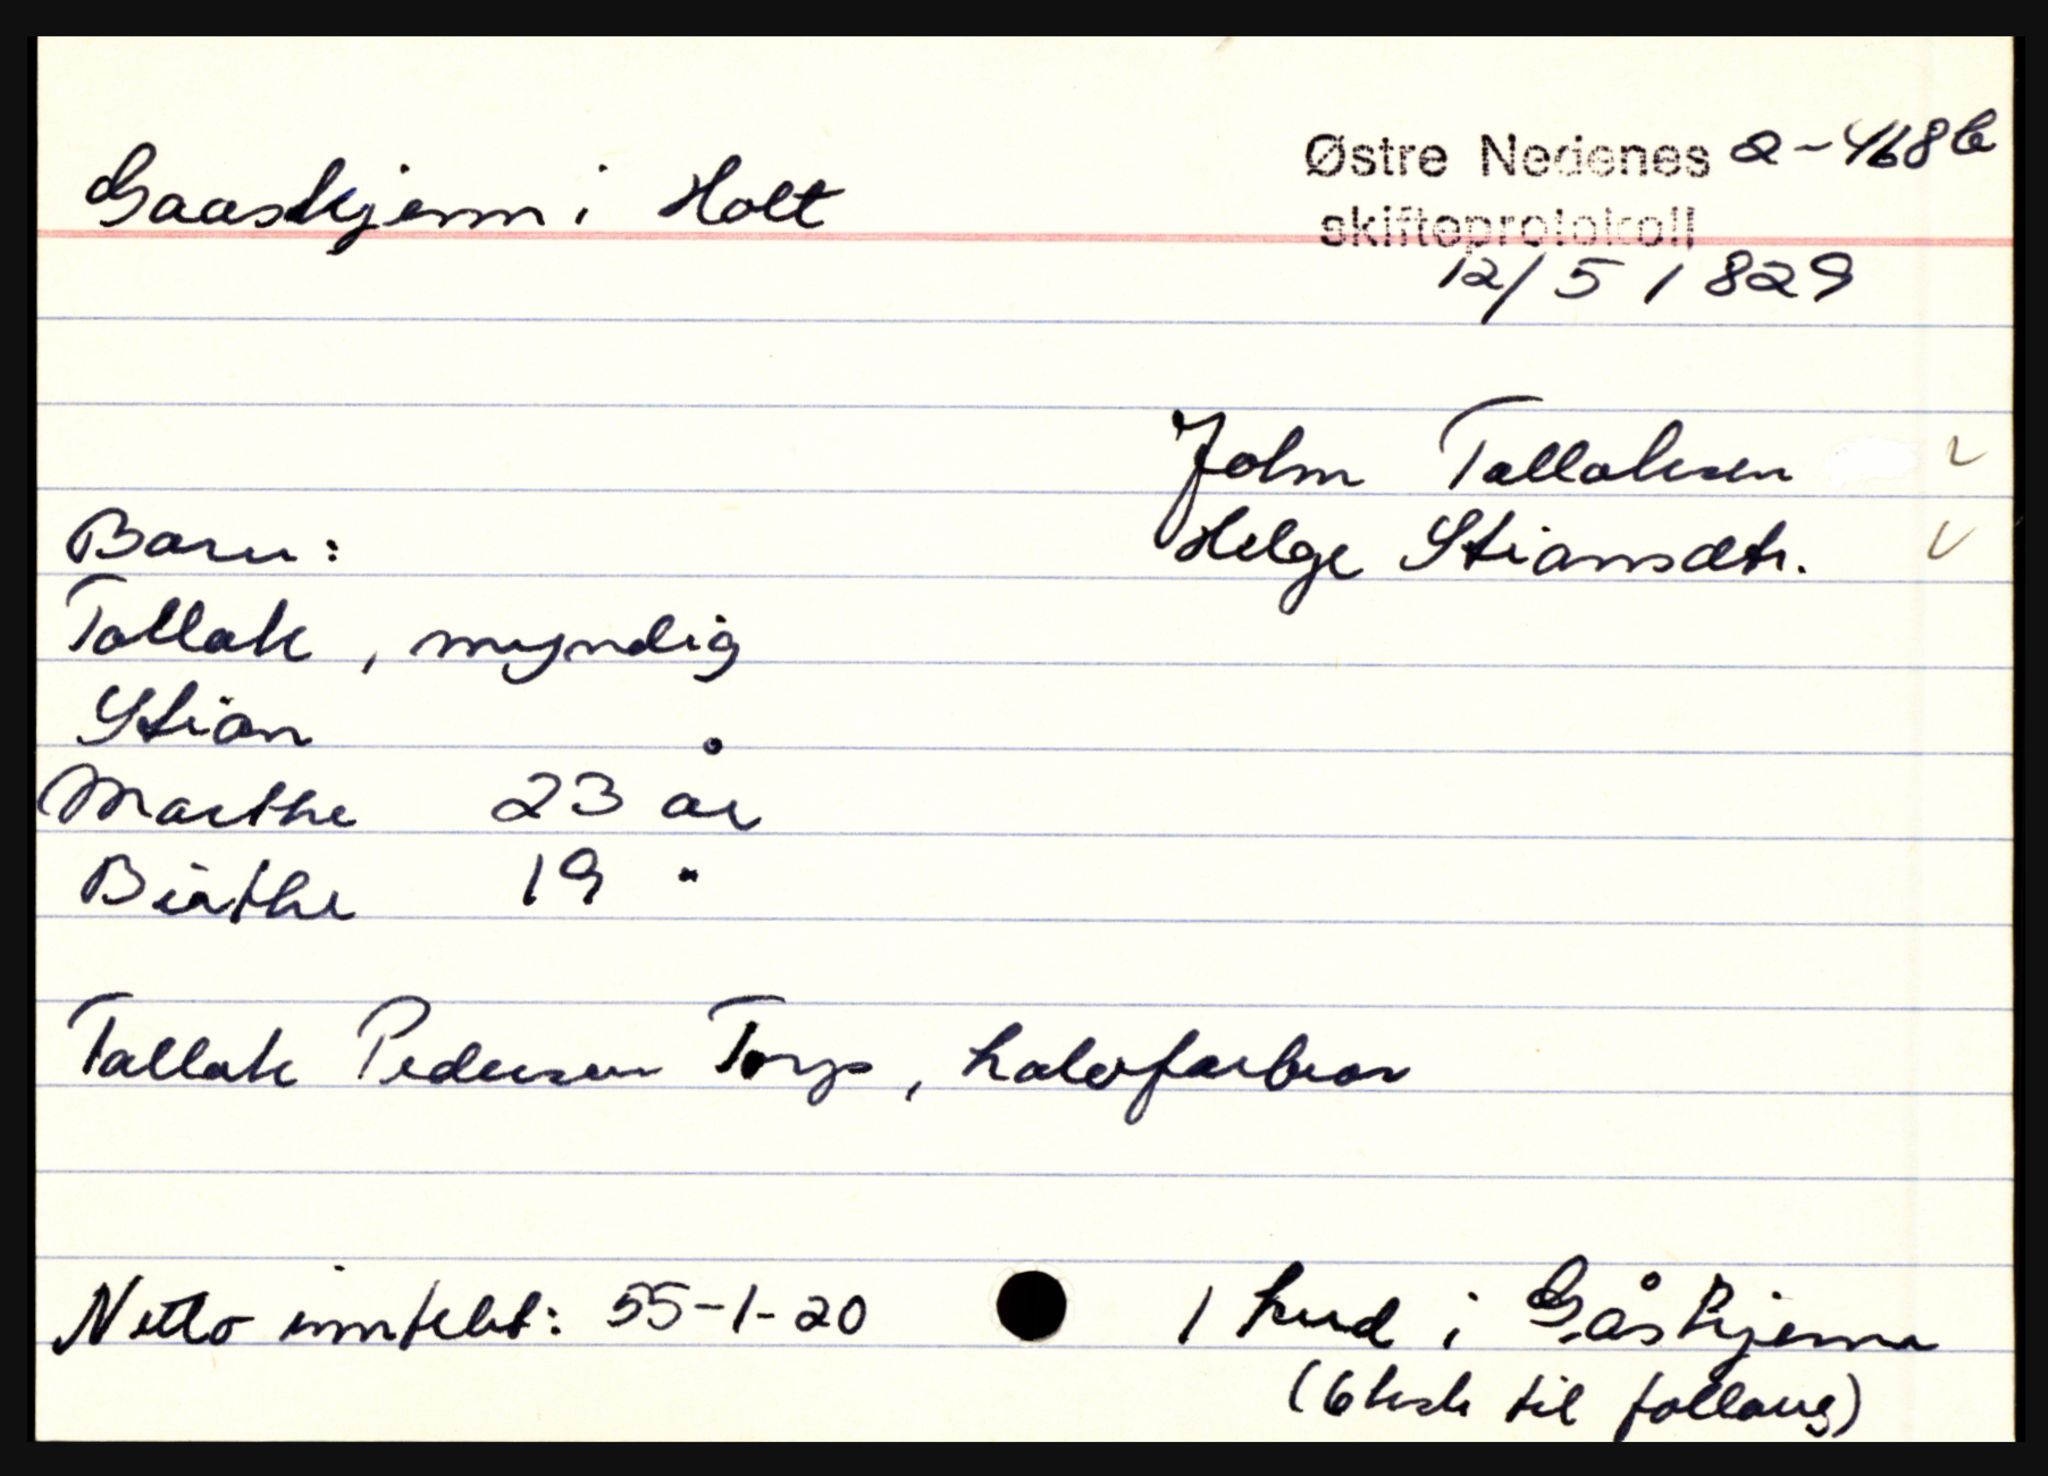 Østre Nedenes 2-468b
Gaaskjenn i Holt
skifteprotokoll
12/5 1829
John Tallaksen
Helge Stiansdtr.
Barn:
Tallak, myndig
Stian
Marthe 23 år
Birthe 19 "
Tallak Pedersen Torp, halvfarbror
Netto inntekt: 55-1-20
1 hud i Gåskjenn
(6 ksk til follaug)